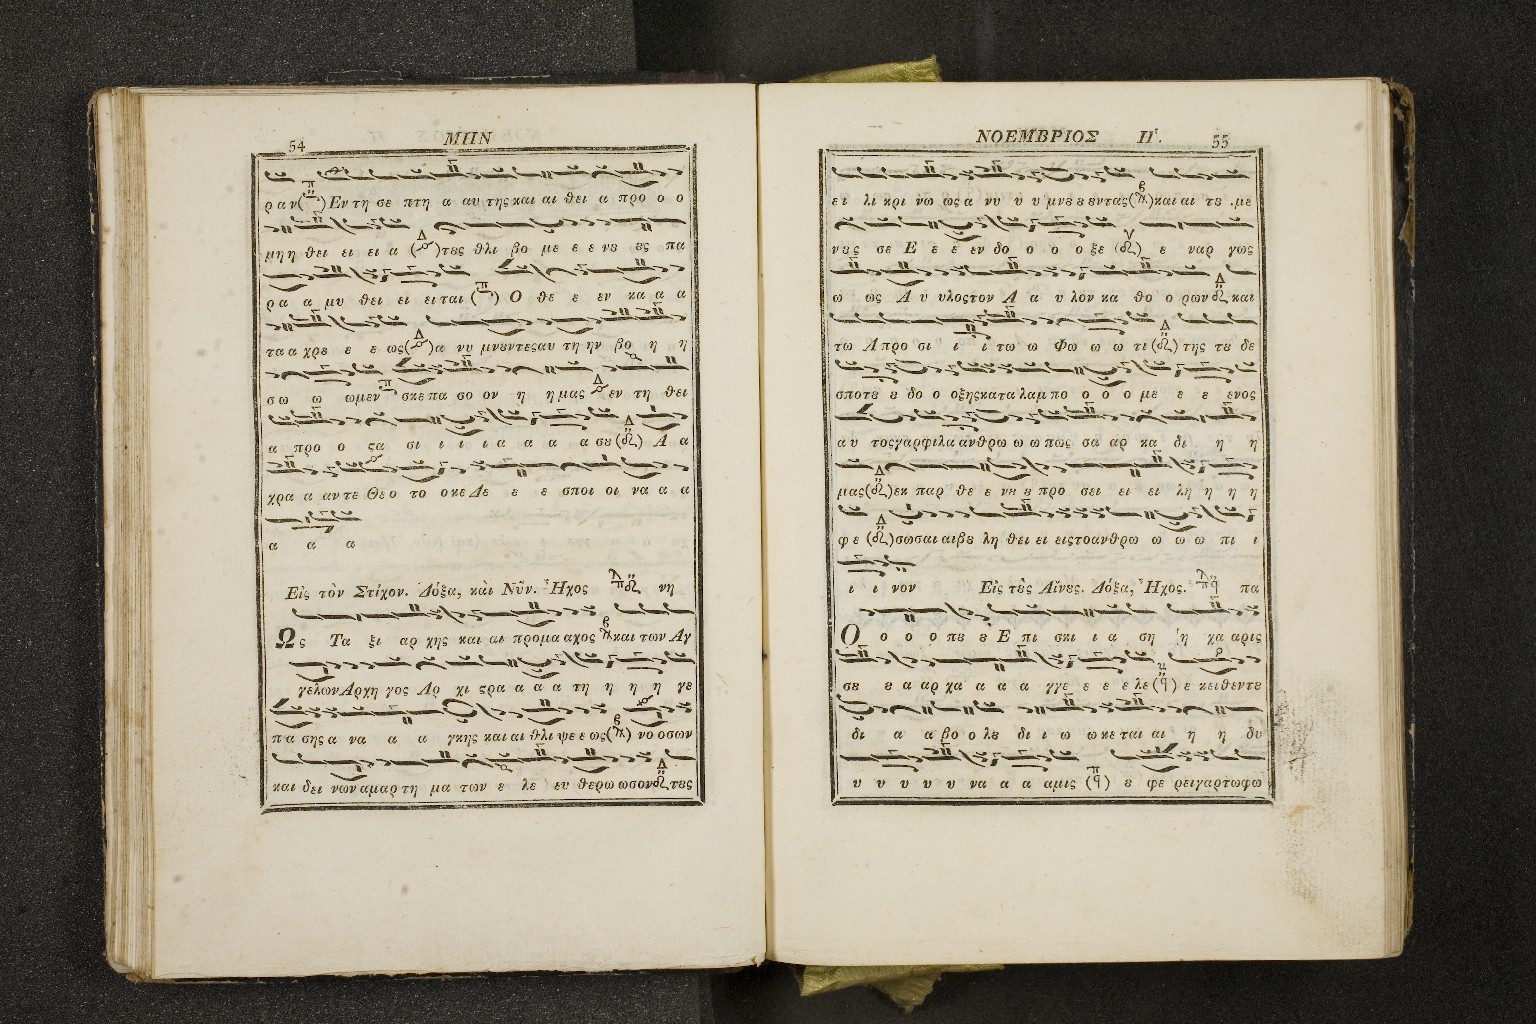 54 ΜΗΝ
ρ αν( )Εν τη σε πτη α αυ της και αι θει α προ ο ο
μη η θει ει ει α ( )τȣς θλι βο με ε ε νȣ ȣς πα
ρα α μυ θει ει ει ται ( ) Ο θε ε εν κα α α
τα α χρȣ ε ε ως( )α νυ μνȣντες αυ τη ην βο η η
σω ω ωμεν σκε πα σο ον η η μας εν τη θει
α προ ο ϛα σι ι ι ι α α α α σȣ( ) Α α
χρα α αν τε Θε ο το ο κε Δε ε ε σποι οι να α α
α α α
Εἰς τὸν Στίχον. Δόξα, καὶ Νῦν. Ἦχος νη
Ως Τα ξι αρ χης και αι προμα αχος και των Αγ
γελων Αρχη γος Αρ χι ϛρα α α α τη η η η γε
πα σης α να α α γκης και αι θλι ψε ε ως( ) νο οσων
και δει νων αμαρ τη μα των ε λε ευ θερω ωσον τȣς
ΝΟΕΜΒΡΙΟΣ Η'. 55
ει λι κρι νω ως α νυ υ υ μνȣ ȣ ȣντας( )και αι τȣ .με
νȣς σε Ε ε ε εν δο ο ο ο ξε ( ) ε ναρ γως
ω ως Α υ υλος τον Α α υ λον κα θο ο ρων και
τω Α προ σι ι ι τω ω Φω ω ω τι( ) της τȣ δε
σποτȣ ȣ δο ο οξης κατα λαμ πο ο ο ο με ε ε ενος
αυ τος γαρ φιλα ανθρω ω ω πως σα αρ κα δι η η
μας( )εκ παρ θε ε νȣ ȣ προ σει ει ει λη η η η
φε ( )σωσαι αι βȣ λη θει ει ει εις το ανθρω ω ω ω πι ι
ι ι νον Εἰς τȣς Αἴνȣς. Δόξα, Ἦχος. πα
Ο ο ο ο πȣ ȣ Ε πι σκι ι α ση η χα αρις
σȣ ȣ α αρ χα α α α γγε ε ε ε λε( ) ε κει θεν τȣ
δι α α βο ο λȣ δι ι ω ω κε ται αι η η δυ
υ υ υ υ υ να α α αμις ( ) ȣ φε ρει γαρ τω φω